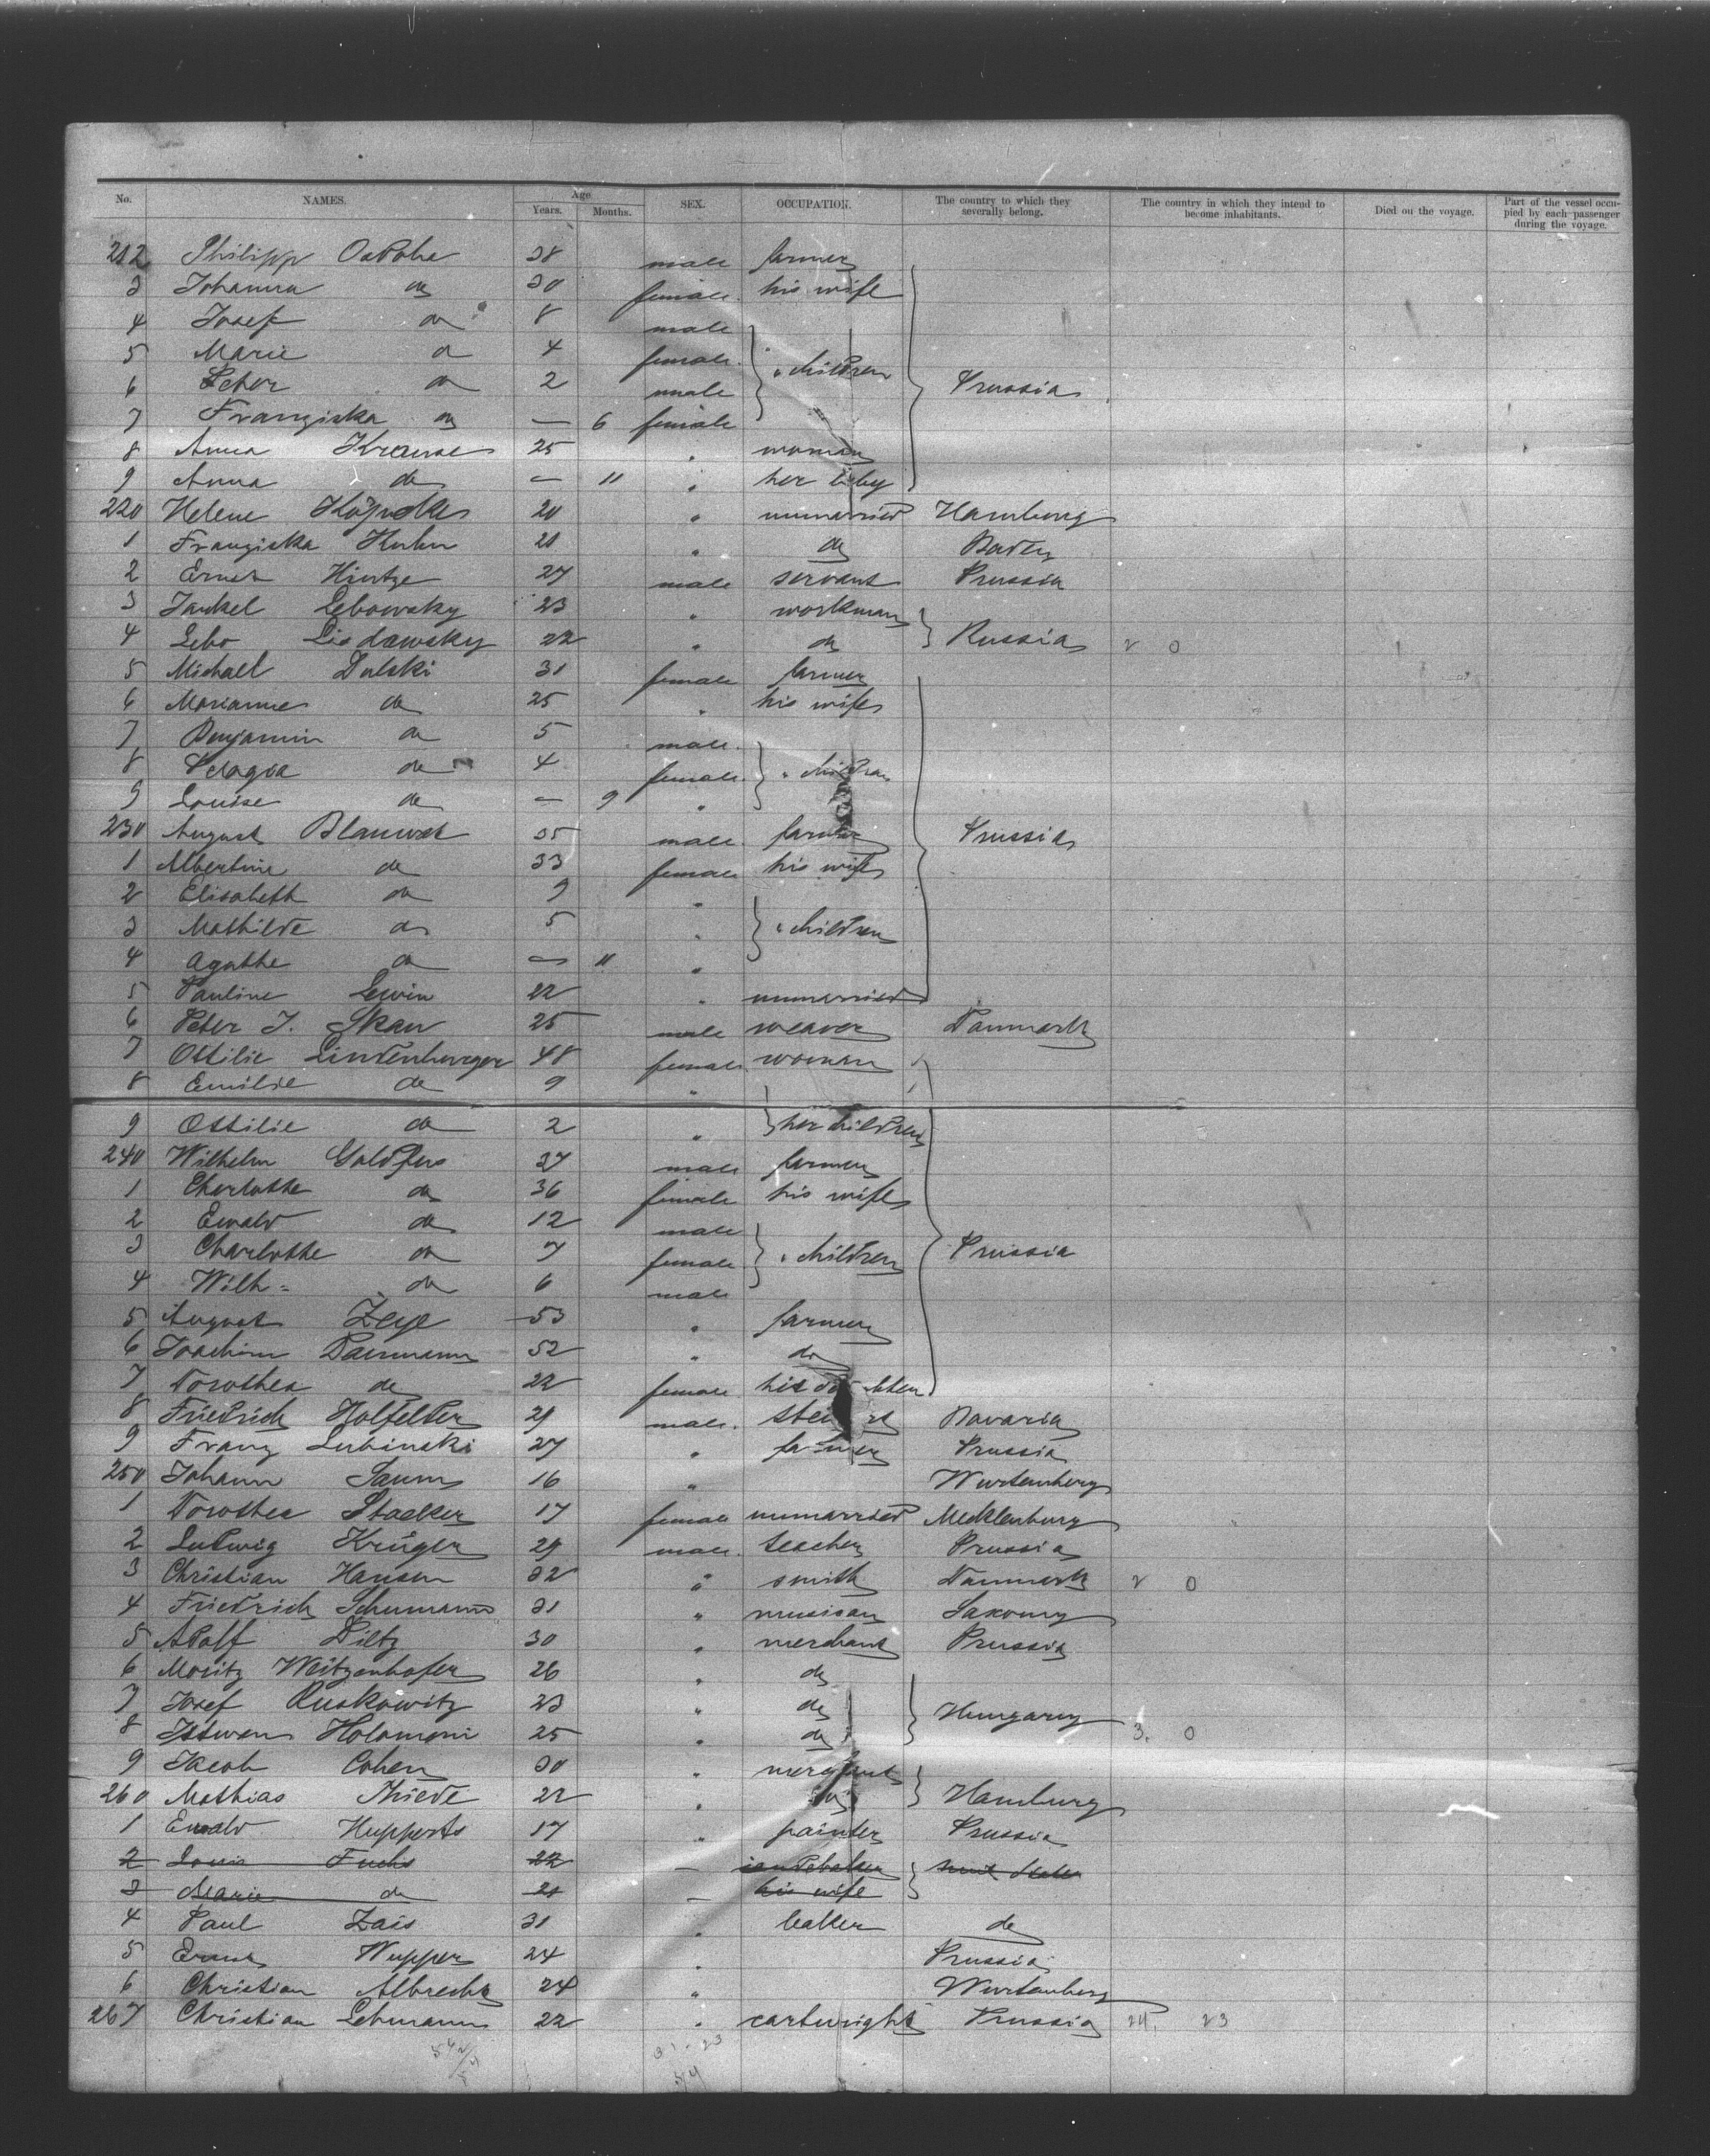 No. NAMES. Age Years. Months. SEX. OCCUPATION. The country to which they severally belong. The country in which they intend to become inhabitants. Died on the voyage. Part of the vessel occupied by each passenger during the voyage.
212 Philipp 38 male farmer
3 Johanna do 30 female his wife
4 Josef do 8 male
5 Marie do 4 female " children
6 Peter do 2 male Prussia
7 Franziska do — 6 female
8 Anna Krause 25 " woman
9 Anna do — 11 " her baby
220 Helene 20 " unmarried Hamburg
1 Franziska Huhn 21 " do Baden
2 Ernst Hintze 27 male servant Prussia
3 Jankel Lebowsky 23 " workman
4 Lebo Lisdawsky 22 " do Russia 2 0
5 Michael Dulski 31 female farmer
6 Marianne do 25 " his wife
7 Benjamin do 5 male
8 Pelagia do 4 female " children
9 Louise do — 9 "
230 August 35 male farmer Prussia
1 Albertine do 33 female his wife
2 Elisabeth do 9 "
3 Mathilde do 5 " " children
4 Agathe do — 11 "
5 Pauline Lewin 22 " unmarried
6 Peter J. Skau 25 male weaver Danmark
7 Ottilie Lindenburger 48 female woman
8 Emilie do 9 "
9 Ottilie do 2 " her children
240 Wilhelm 37 male farmer
1 Charlotte do 36 female his wife
2 Ewald do 12 male
3 Charlotte do 7 female " children Prussia
4 Wilh= do 6 male
5 August Zeye 53 " farmer
6 Joachim 52 " do
7 Dorothea do 22 female his
8 Friedrich Holfelder 29 male Bavaria
9 Franz Lubinski 27 " farmer Prussia
250 Johann 16 " Wurtemberg
1 Dorothea Staecker 17 female unmarried Mecklenburg
2 Ludwig Krüger 29 male teacher Prussia
3 Christian Hansen 32 " smith Danmark 2 0
4 Friedrich Schumann 31 " musican Saxony
5 Adolf Diltz 30 " merchant Prussia
6 Moritz Weitzenhofer 26 " do
7 Josef Ruskowitz 23 " do Hungary
8 Istwan Holomoni 25 " do 3. 0
9 Jacob Cohen 30 " merchant
260 Mathias Thiede 22 " do Hamburg
1 Ewald Hupperts 17 " painter Prussia
2 Louis Fuchs 22 —
3 Marie do 21 — his wife
4 Paul Zais 31 " do
5 Ernst Wupper 24 " Prussia
6 Christian Albrecht 24 " Wurtemberg
267 Christian Lehmann 22 " cartwright Prussia 24. 23
31-23
54